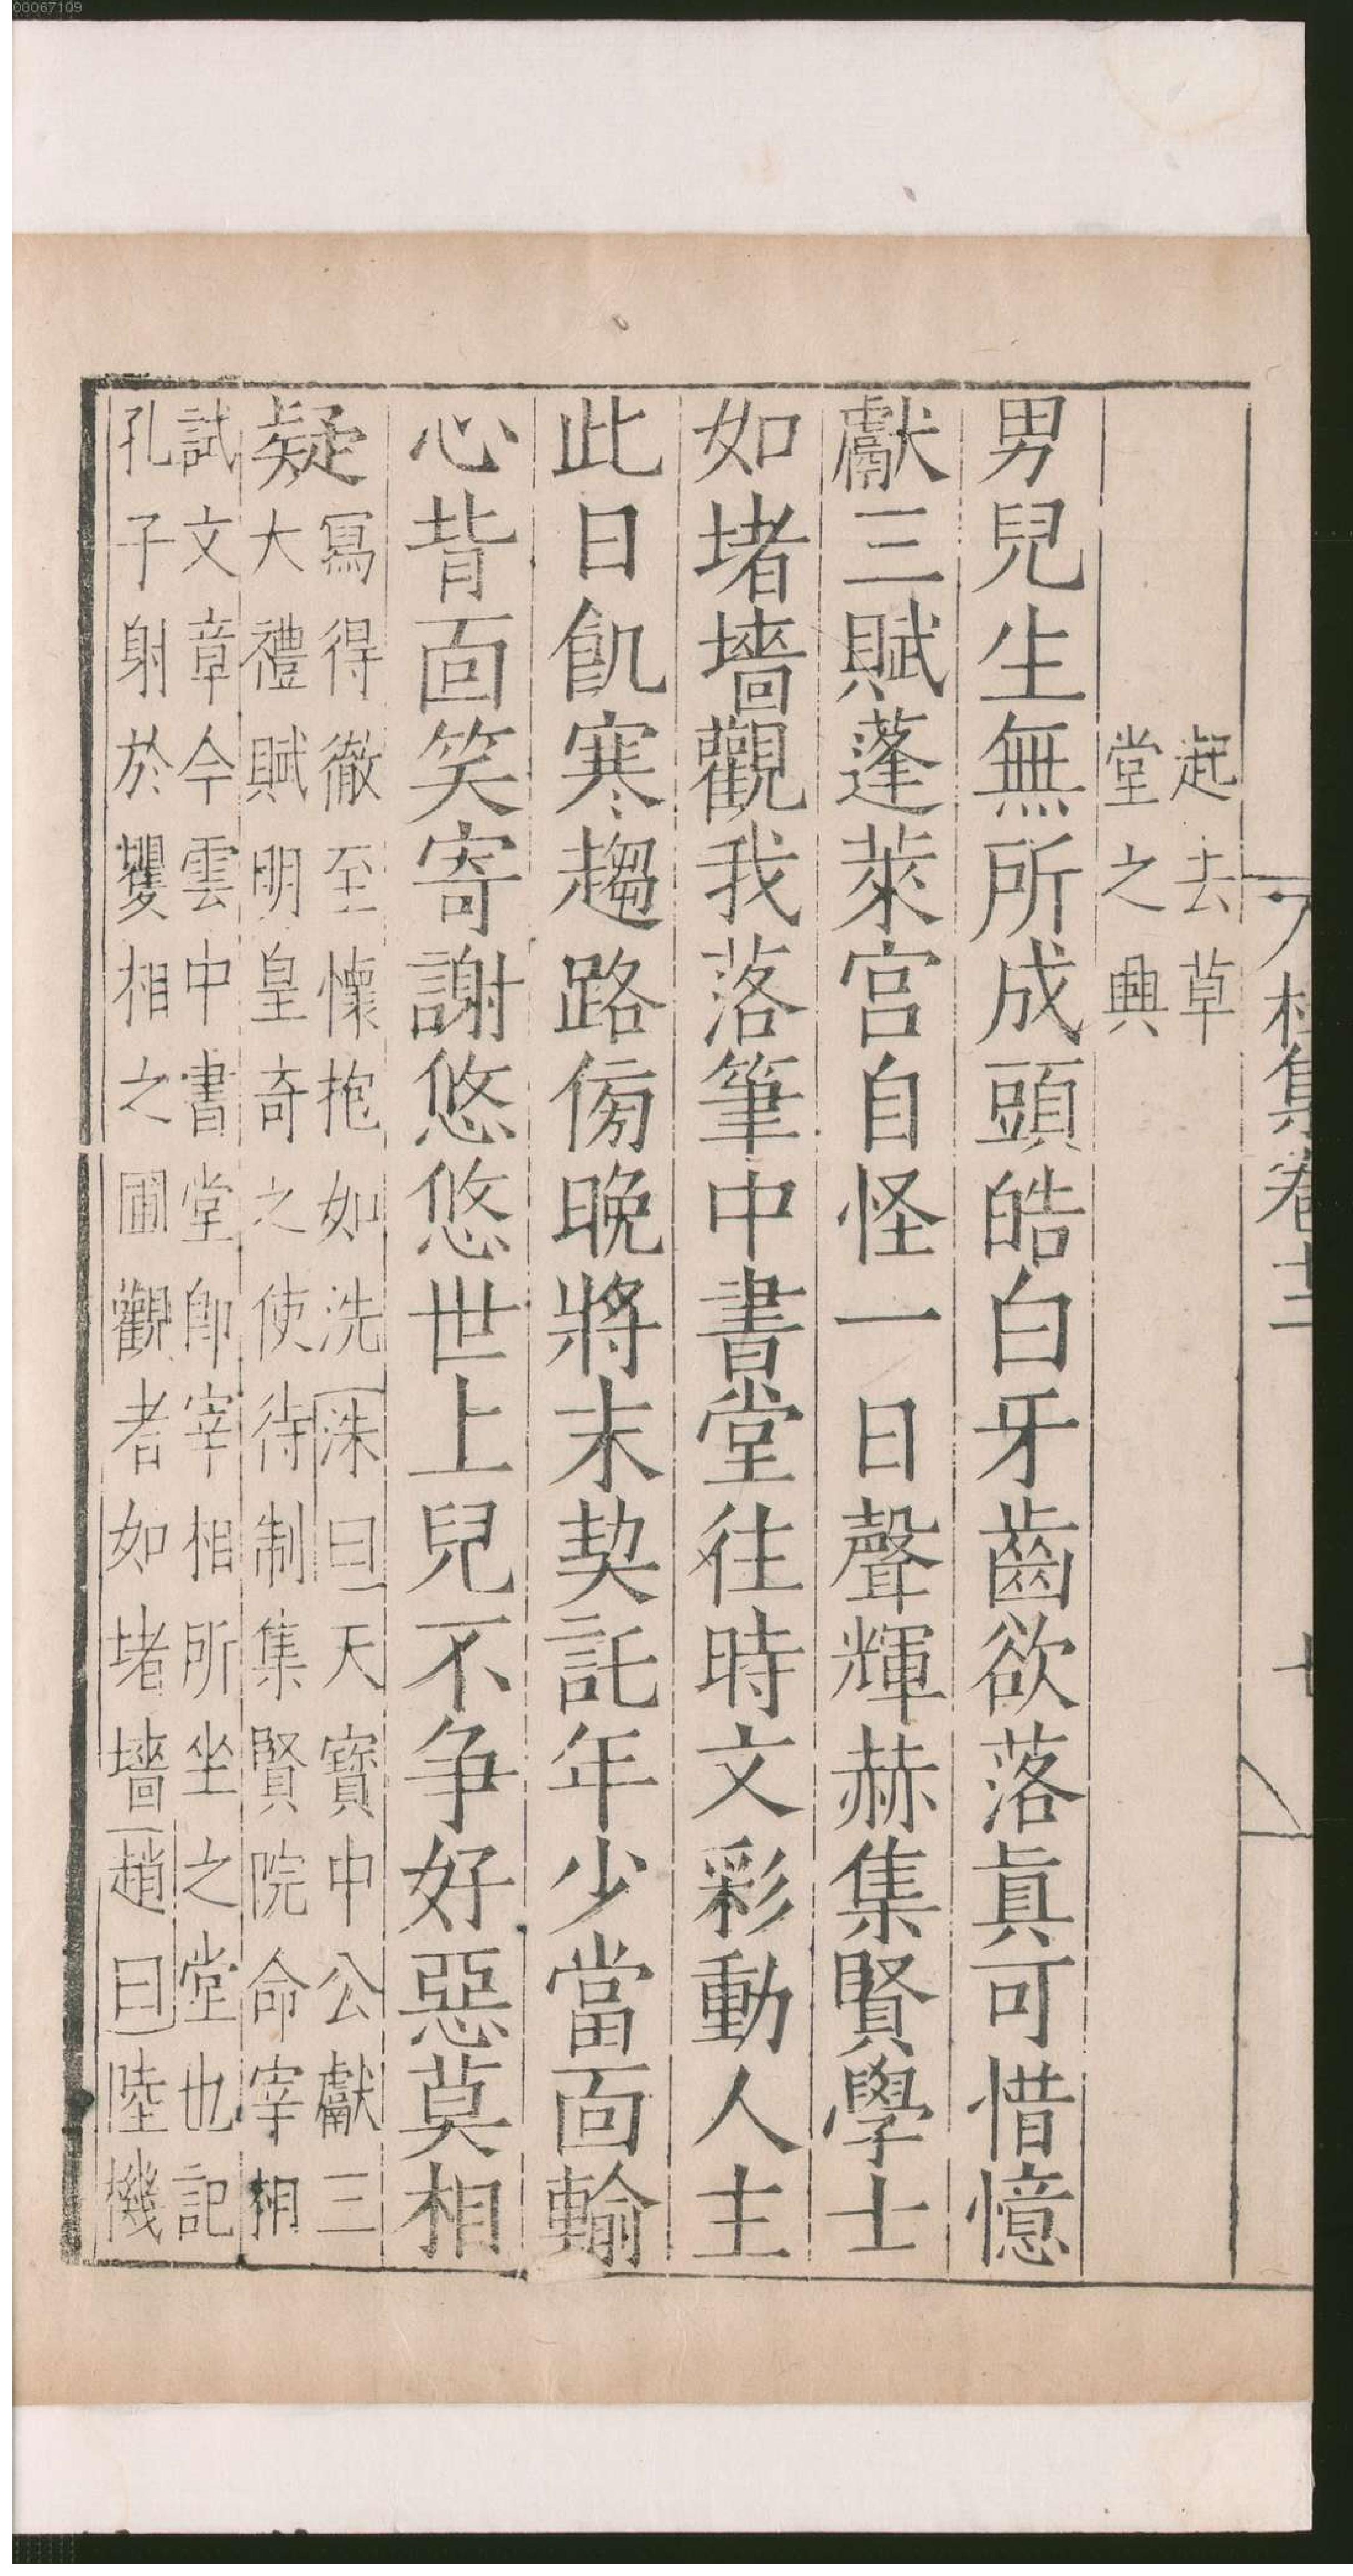 00067109
杜集卷十二
起去草
堂之興
男兒生無所成頭皓白牙齒欲落眞可惜憶
獻三賦蓬萊宮自怪一日聲輝赫集賢學士
如堵墻觀我落筆中書堂往時文彩動人主
此日飢寒趨路傍晚將末契託年少當面輸
心背面笑寄謝悠悠世上兒不爭好惡莫相
疑
寫得徹至懷抱如洗洙曰天寶中公獻三
大禮賦明皇奇之使待制集賢院命宰相
試文章今雲中書堂卽宰相所坐之堂也記
孔子射於矍相之圃觀者如堵墻趙曰陸機